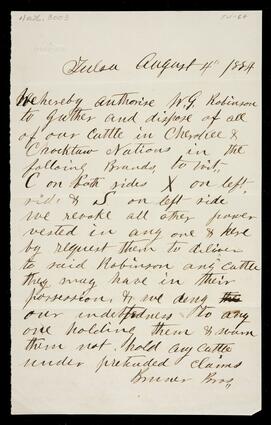 Tulsa August 4" 1884
We hereby authorise W.G. Robinson
to guther and dispose of all
of our Cattle in Cherokee &
Chocktaw Nations in the
folloing Brands, to wit,
C on both sides X on left
side & S on left side
we revoke all other power
vested in any one & here
by request them to deliver
to said Robinson any Cattle
they may have in their
possession, & we deny the
our indebtedness to any
one holding them & warn
them not hold any Cattle
under pretended claims
Bruner Bros,